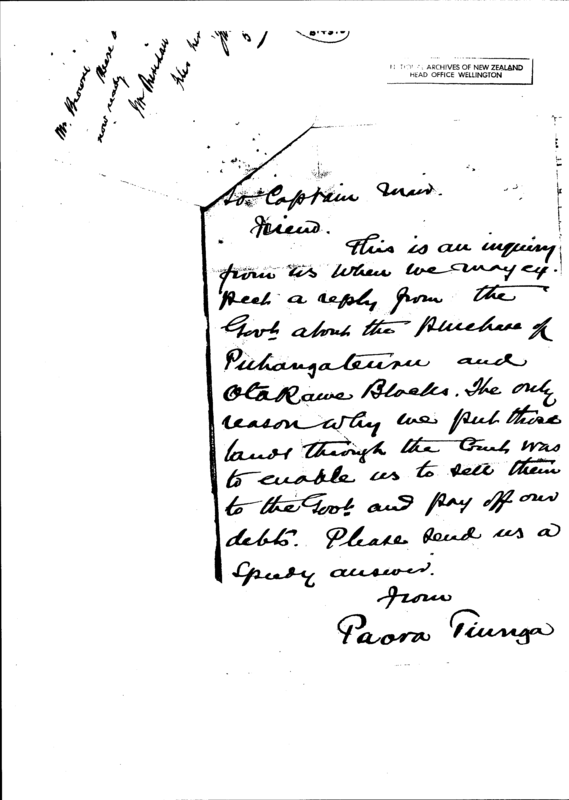 Mr Browne
now ready
ARCHIVES OF NEW ZEALAND
HEAD OFFICE WELLINGTON
To Captain Mair.
Friend.
This is an inquiry
from us when we may ex-
pect a reply from the
Govt about the purchase of
Puhangateuru and
Otakawe Blocks. The only
reason why we put those
lands through the Court was
to enable us to sell them
to the Govt and pay off our
debts. Please send us a
speedy answer.
From
Paora Tiunga